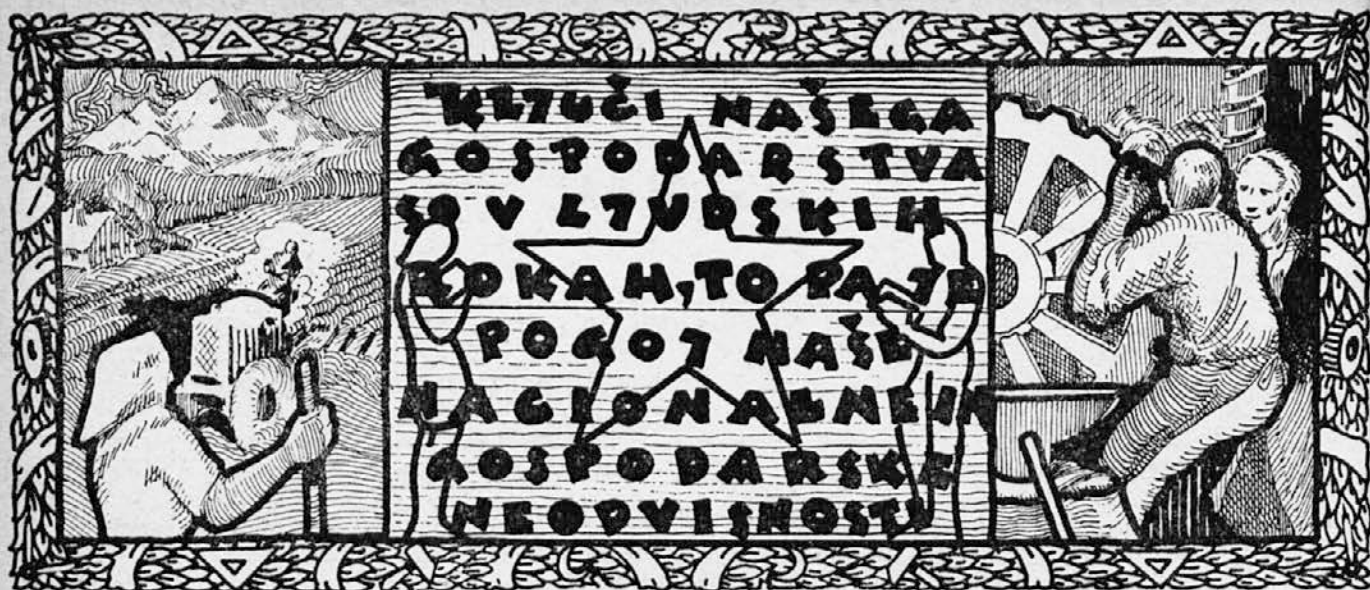 KLJUČI NAŠEGA
GOSPODARSTVA
SO V LJUDSKIH
ROKAH, TO PA JE
POGOJ NAŠE
NACIONALNE IN
GOSPODARSKE
NEODVISNOSTI